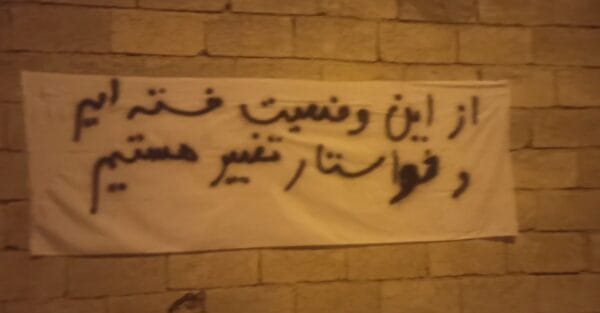 از این وضعیت خسته ایم
و خواستار تغییر هستیم